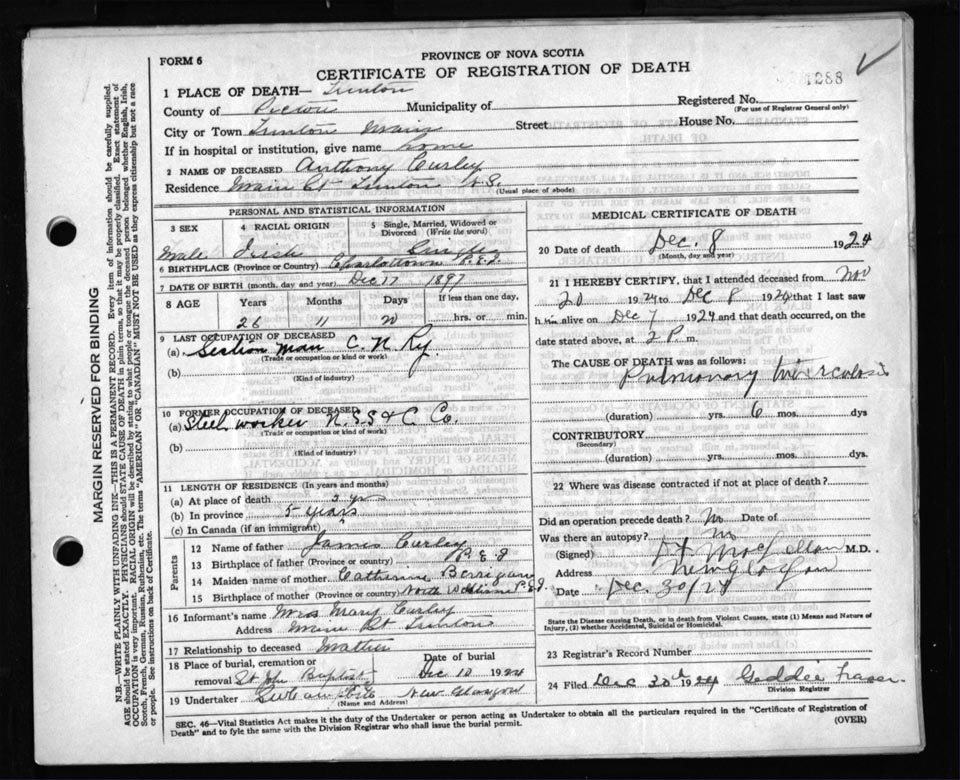 FORM 6
PROVINCE OF NOVA SCOTIA
CERTIFICATE OF REGISTRATION OF DEATH
1288
1 PLACE OF DEATH— Trenton
County of Pictou Municipality of Registered No.
(For use of Registrar General only)
City or Town Trenton Main Street House No.
If in hospital or institution, give name home
2 NAME OF DECEASED Anthony Curley
Residence Main St Trenton N.S. (Usual place of abode)
PERSONAL AND STATISTICAL INFORMATION
3 SEX 4 RACIAL ORIGIN 5 Single, Married, Widowed or Divorced (Write the word)
Male Irish Single
6 BIRTHPLACE (Province or Country) Charlottown P.E.I
7 DATE OF BIRTH (month, day and year) Dec 17 1897
8 AGE Years Months Days If less than one day,
26 11 hrs. or min.
9 LAST OCCUPATION OF DECEASED
(a) Section man C. N. Ry.
(Trade or occupation or kind of work)
(b)
(Kind of industry)
10 FORMER OCCUPATION OF DECEASED
(a) Steel worker N.S.S & C Co.
(Trade or occupation or kind of work)
(b)
(Kind of industry)
11 LENGTH OF RESIDENCE (In years and months)
(a) At place of death yrs
(b) In province 5 years
(c) In Canada (if an immigrant)
Parents
12 Name of father James Curley
13 Birthplace of father (Province or country) P.E.I
14 Maiden name of mother Catherine Berrigan
15 Birthplace of mother (Province or country) North P.E.I.
16 Informant's name Mrs Mary Curley
Address Main St Trenton
17 Relationship to deceased Mother
18 Place of burial, cremation or removal St John Baptist Date of burial Dec 10 1924
19 Undertaker New Glasgow
(Name and Address)
MEDICAL CERTIFICATE OF DEATH
20 Date of death Dec. 8 1924
(Month, day and year)
21 I HEREBY CERTIFY, that I attended deceased from Nov
20 1924 to Dec 8 1924 that I last saw
him alive on Dec 7 1924 and that death occurred, on the
date stated above, at 2 P. m.
The CAUSE OF DEATH was as follows:
Pulmonary tuberculosis
(duration) yrs. 6 mos. dys
CONTRIBUTORY
(Secondary)
(duration) yrs. mos. dys.
22 Where was disease contracted if not at place of death?
Did an operation precede death? No Date of
Was there an autopsy? No
(Signed) M.D.
Address New Glasgow
Date Dec. 30/24
State the Disease causing Death, or in death from Violent Causes, state (1) Means and Nature of
Injury, (2) whether Accidental, Suicidal or Homicidal.
23 Registrar's Record Number
24 Filed Dec 30th 1924 Geddie Fraser
Division Registrar
SEC. 46—Vital Statistics Act makes it the duty of the Undertaker or person acting as Undertaker to obtain all the particulars required in the "Certificate of Registration of
Death" and to fyle the same with the Division Registrar who shall issue the burial permit. (OVER)
MARGIN RESERVED FOR BINDING
N.B.—WRITE PLAINLY WITH UNFADING INK—THIS IS A PERMANENT RECORD. Every item of information should be carefully supplied.
AGE should be stated EXACTLY. PHYSICIANS should STATE CAUSE OF DEATH in plain terms, so that it may be properly classified. Exact statement of
OCCUPATION is very important. RACIAL ORIGIN will be described by stating to what people or tongue the deceased person belonged whether English, Irish,
Scotch, French, German, Russian, Ruthenian, etc. The terms "AMERICAN" or "CANADIAN" MUST NOT BE USED as they express citizenship but not a race
or people. See instructions on back of Certificate.